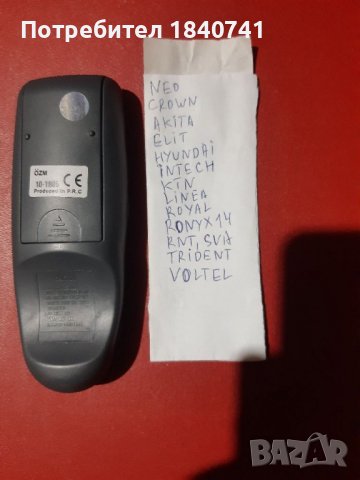 Потребител 1840741
ÖZM
10-1805 CE
Produced in P.R.C
NEO
CROWN
AKITA
ELIT
HYUNDAI
INTECH
KIN
LINEA
ROYAL
RONYX14
RNT, SVA
TRIDENT
VOLTEL
BAZAR